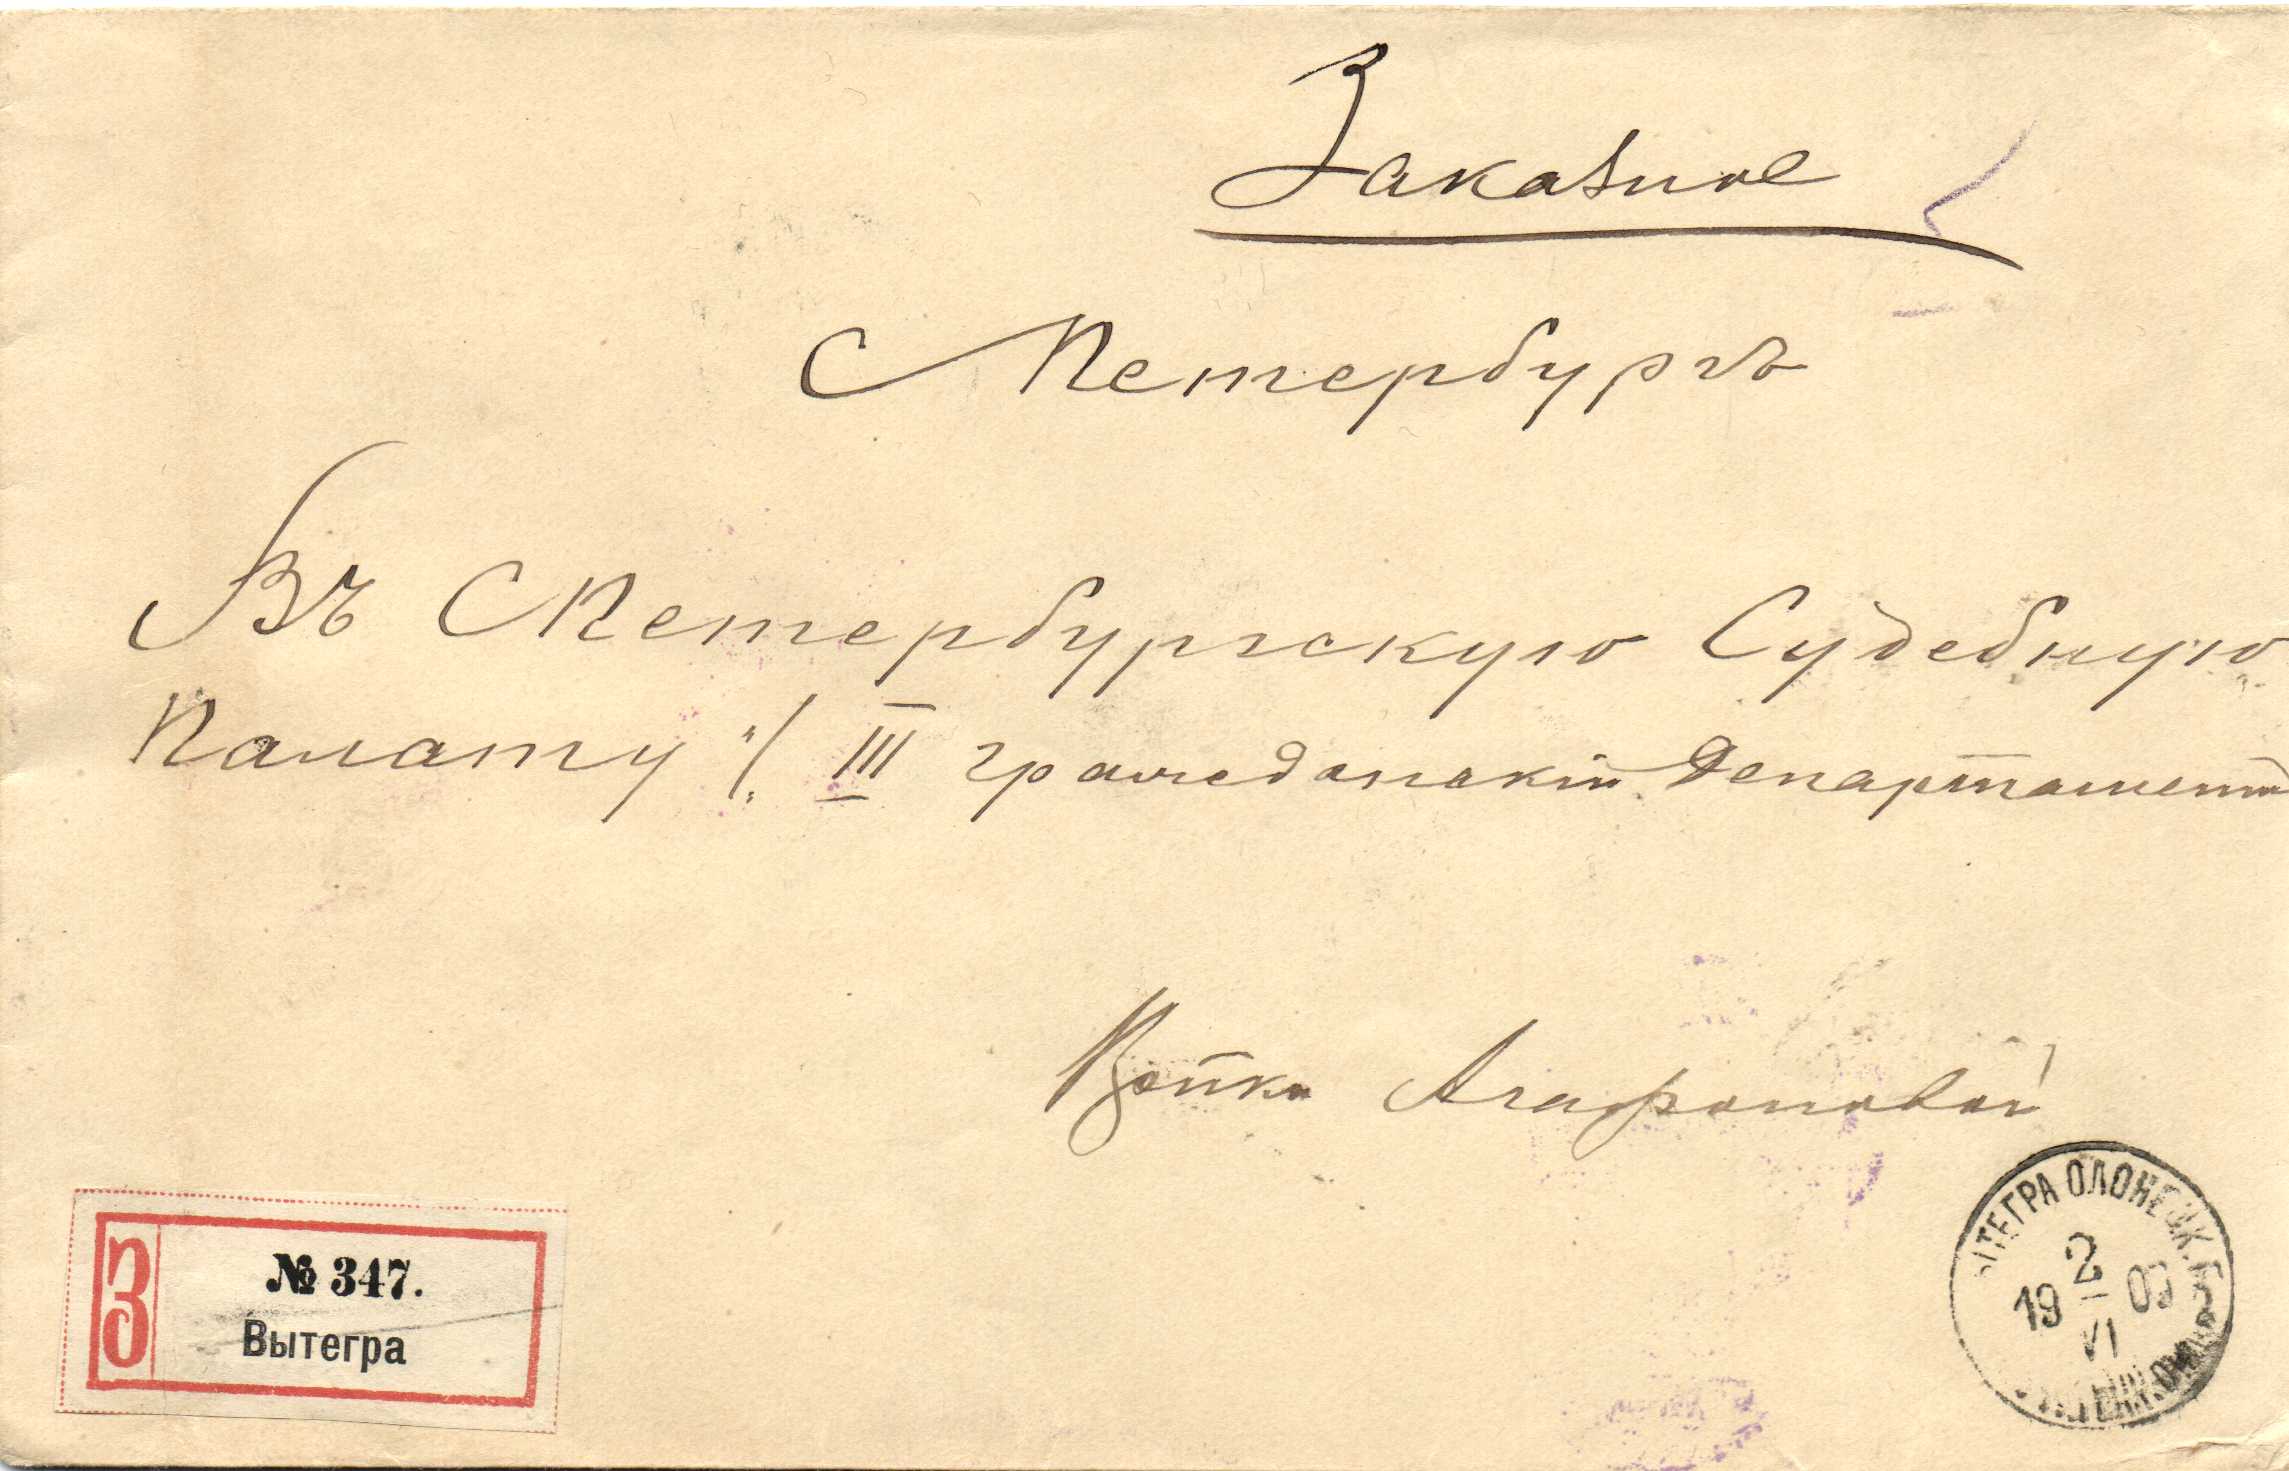 Заказное
СПетербургъ
Въ СПетербургскую Судебную
Палату "/. III гражданскій Департаментъ
Агафоновой
З
№ 347.
Вытегра
ВЫТЕГРА ОЛОНЕЦК. Г.
2
19 VI 03